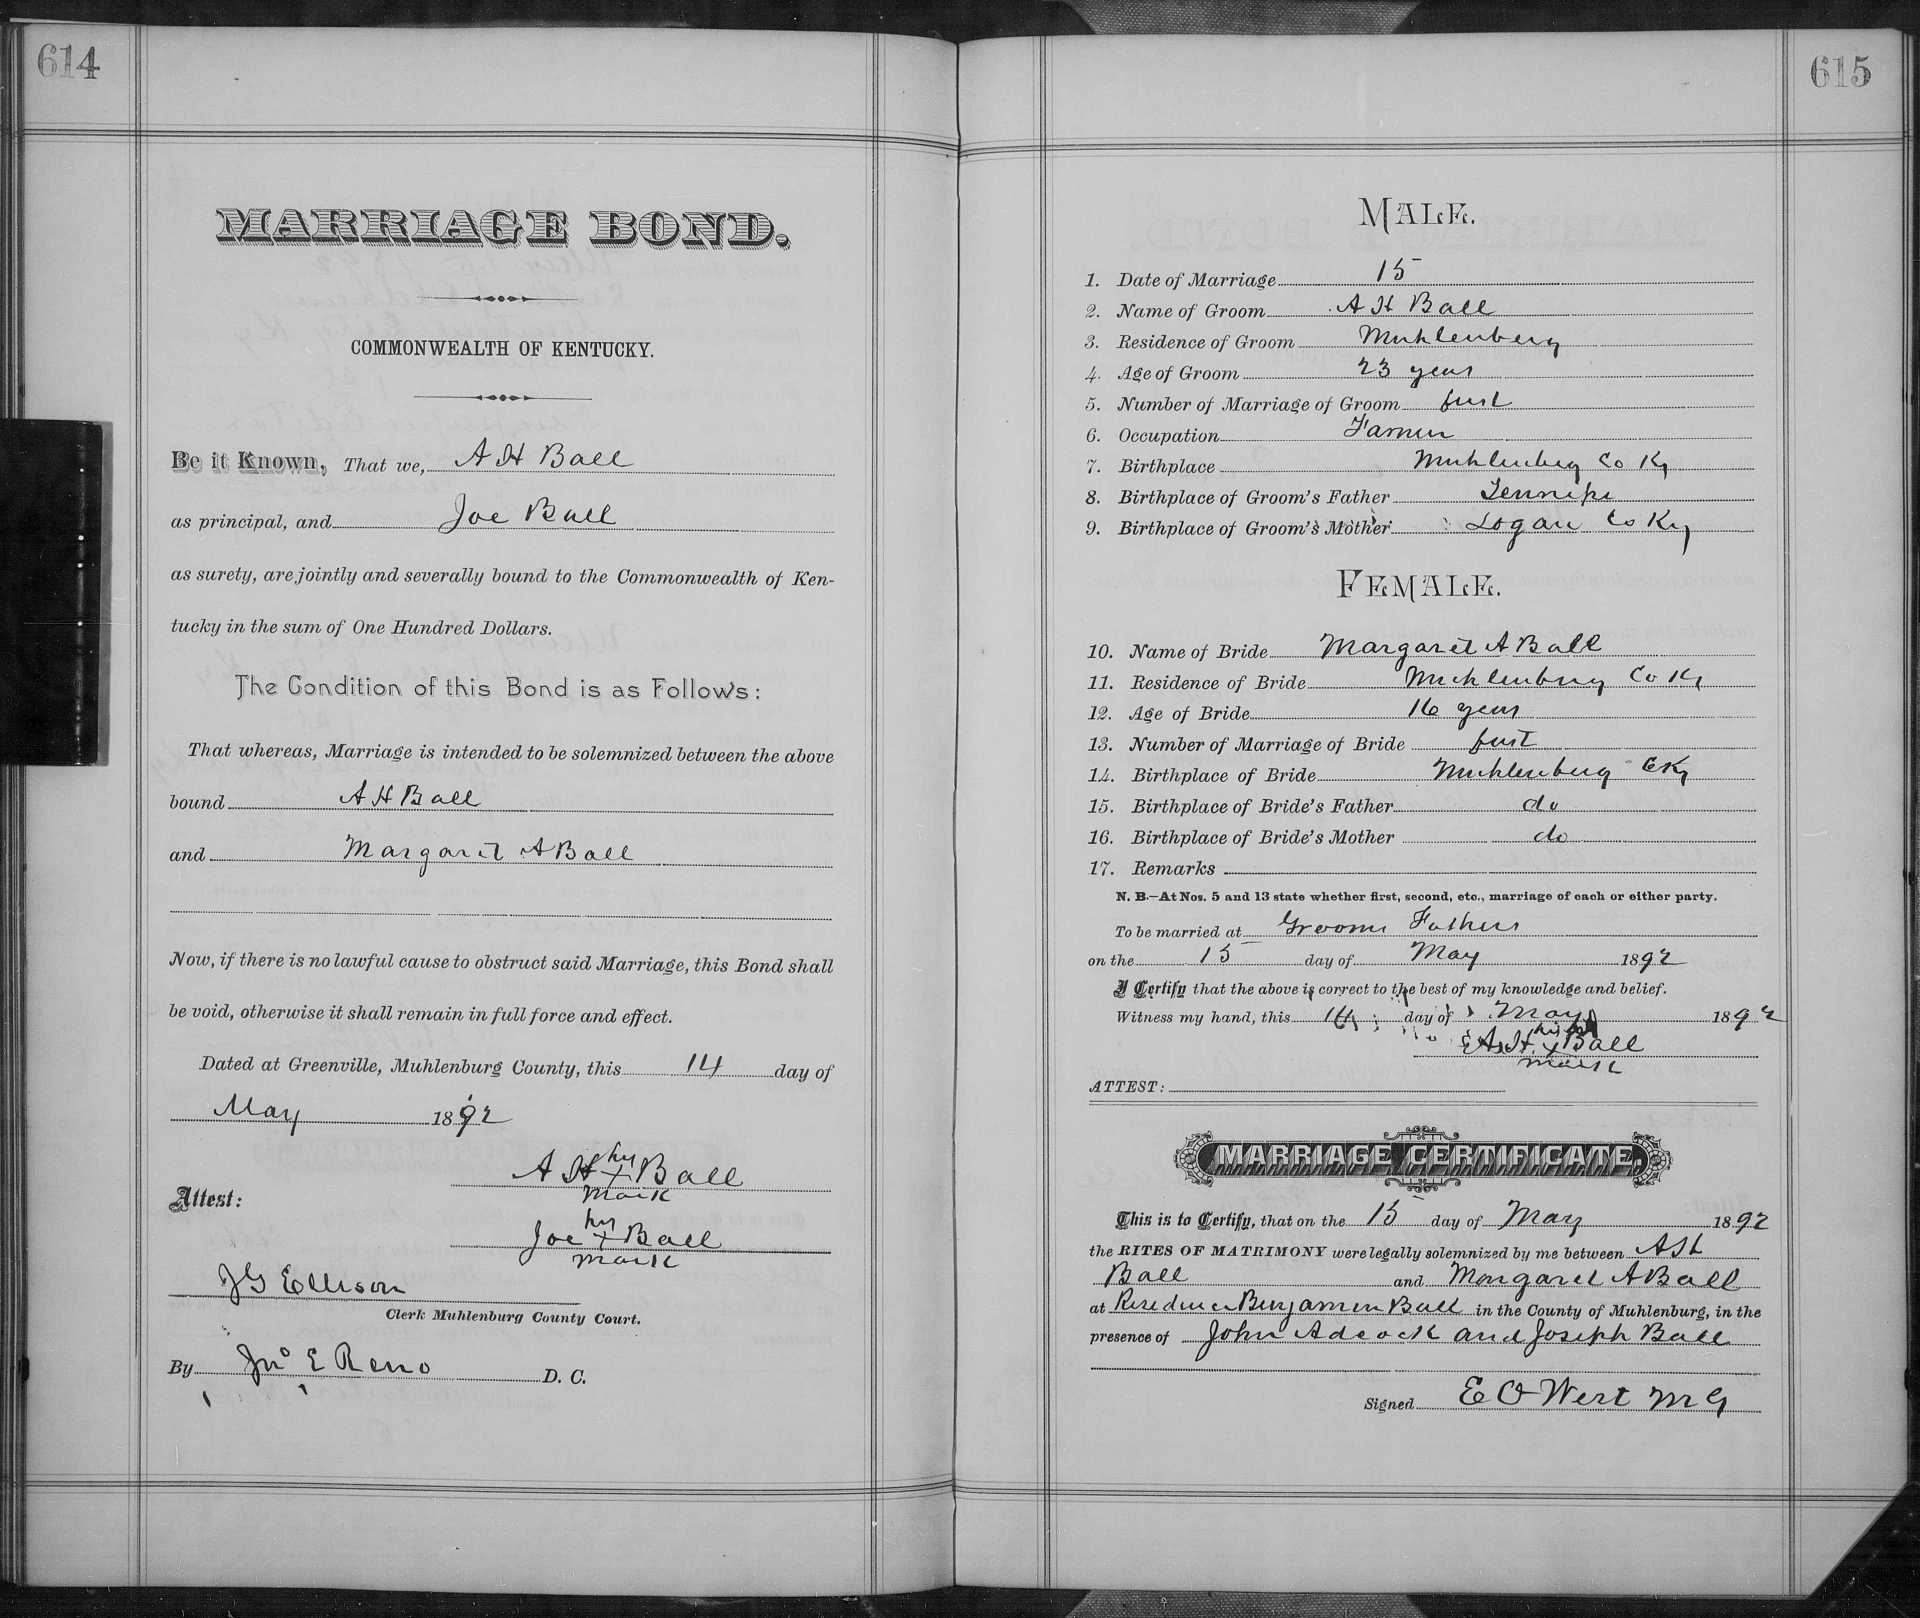 614
MARRIAGE BOND.
COMMONWEALTH OF KENTUCKY.
Be it Known, That we, A H Ball
as principal, and Joe Ball
as surety, are jointly and severally bound to the Commonwealth of Ken-
tucky in the sum of One Hundred Dollars.
The Condition of this Bond is as Follows:
That whereas, Marriage is intended to be solemnized between the above
bound A H Ball
and Margaret A Ball
Now, if there is no lawful cause to obstruct said Marriage, this Bond shall
be void, otherwise it shall remain in full force and effect.
Dated at Greenville, Muhlenburg County, this 14 day of
May 1892
his
A H x Ball
mark
Attest:
his
Joe x Ball
mark
J G Ellison
Clerk Muhlenburg County Court.
By Jno E Reno D. C.
615
MALE.
1. Date of Marriage 15
2. Name of Groom A H Ball
3. Residence of Groom Muhlenberg
4. Age of Groom 23 years
5. Number of Marriage of Groom first
6. Occupation Farmer
7. Birthplace Muhlenberg Co Ky
8. Birthplace of Groom's Father Tennessee
9. Birthplace of Groom's Mother Logan Co Ky
FEMALE.
10. Name of Bride Margaret A Ball
11. Residence of Bride Muhlenburg Co Ky
12. Age of Bride 16 years
13. Number of Marriage of Bride first
14. Birthplace of Bride Muhlenburg C Ky
15. Birthplace of Bride's Father do
16. Birthplace of Bride's Mother do
17. Remarks
N. B.—At Nos. 5 and 13 state whether first, second, etc., marriage of each or either party.
To be married at Grooms Fathers
on the 15 day of May 1892
I Certify that the above is correct to the best of my knowledge and belief.
Witness my hand, this 14 day of May 1892
his
A H x Ball
mark
ATTEST:
MARRIAGE CERTIFICATE.
This is to Certify, that on the 15 day of May 1892
the RITES OF MATRIMONY were legally solemnized by me between A H
Ball and Margaret A Ball
at Residence Benjamin Ball in the County of Muhlenburg, in the
presence of John Adcock and Joseph Ball
Signed E O West M G